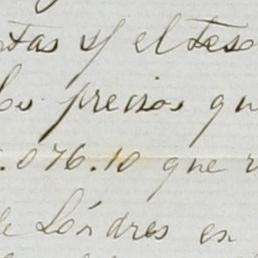 tas s/ el Teso
los precios qu
.076.10 que r
de Londres en